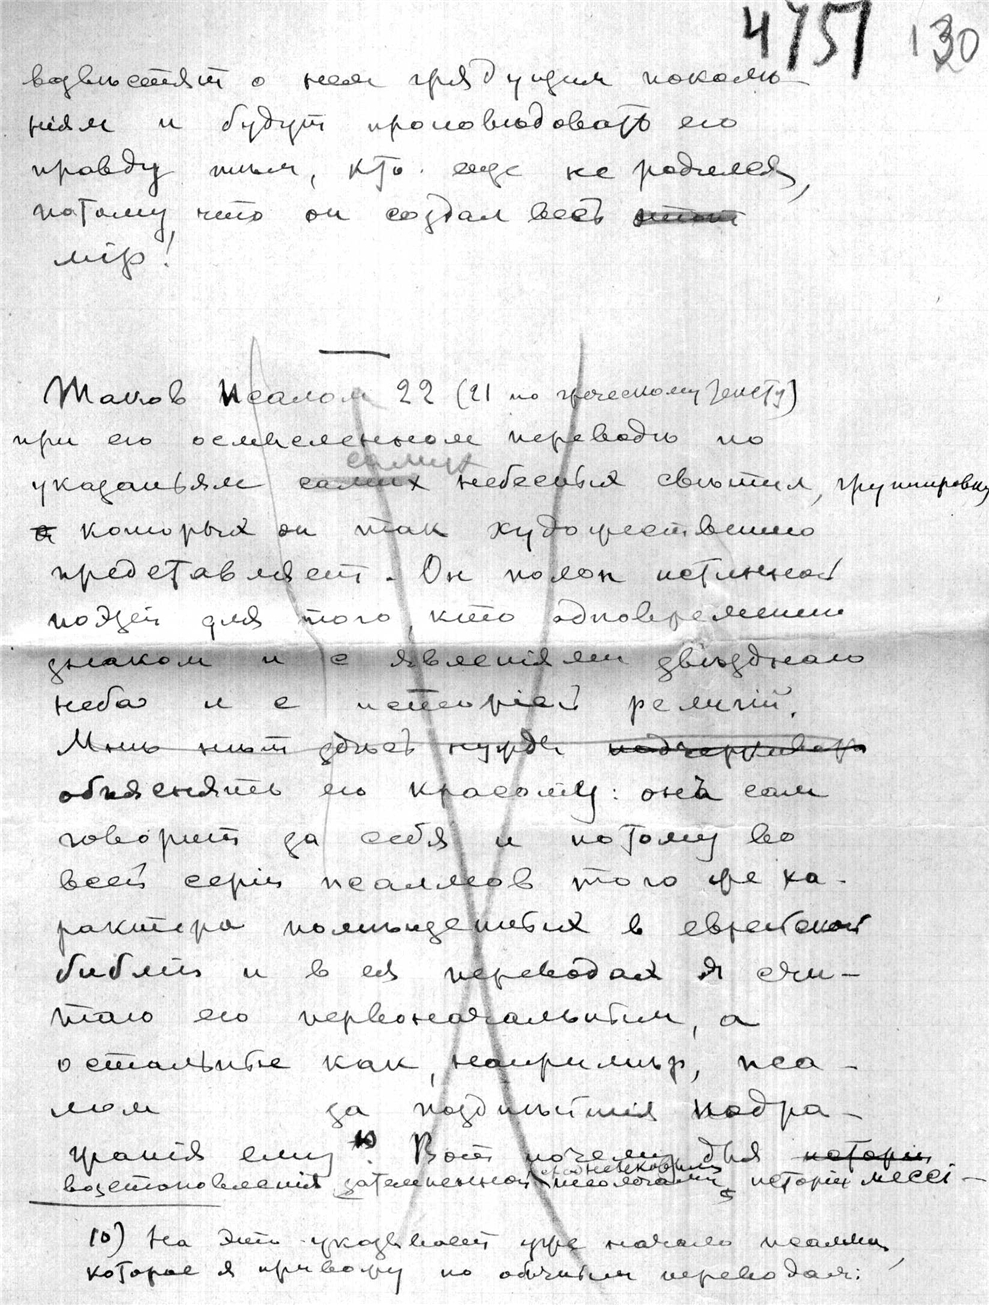 4757 130
возвѣстят о нем грядущим поколѣ-
ніям и будут проповѣдовать его
правду тѣм, кто еще не родился,
потому что он создал весь этот
мір!
Таков Псалом 22 (21 по греческому тексту)
при его осмысленном переводѣ по
указаньям самих самих небесных свѣтил, группировку
которых он так художественно
представляет. Он полон истинной
поэзіи для того, кто одновременно
знаком и с явленіями звѣзднаго
неба и с исторіей религій.
Мнѣ нѣт здѣсь нужды подчеркивать
объяснять его красоту: она сам
говорит за себя и потому во
всей серіи псалмов того же ха-
рактера помѣщенных в еврейской
библіи и в ея переводах я счи-
таю его первоначальным, а
остальные как, например, пса-
лом за позднѣйшія подра-
жанія ему. Вот почему для исторіи
возстановленія затемненной исторіи мессі-
10) На это указывает уже начало псалма,
которое я привожу по обычным переводам: